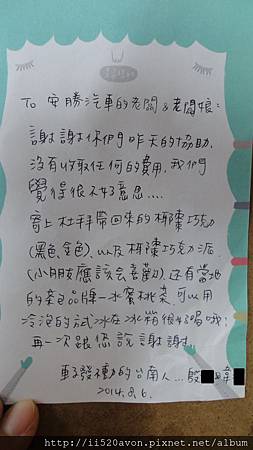 To 安勝汽車的老闆&老闆娘:
謝謝你們昨天的協助,
沒有收取任何的費用,我們
覺得很不好意思....
寄上杜拜帶回來的椰棗巧克力
(黑色、金色)、以及椰棗巧克力派、
(小朋友應該會喜歡)、還有當地
的茶包品牌—水蜜桃茶,可以用
冷泡的方式冰在冰箱很好喝哦!
再一次跟您說謝謝
車子發不動的台南人...殷
2014.8.6.
http://ii520avon.pixnet.net/album